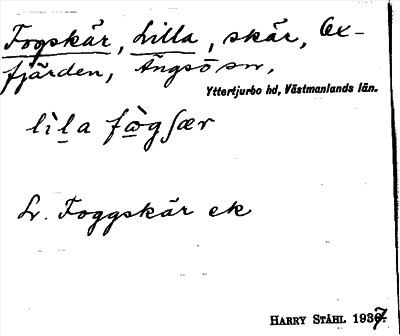 Fogskär, Lilla, skär, Ox-
fjärden, Ängsö sn,
Yttertjurbo hd, Västmanlands län.
lìl̲a fò̲gʃær
L. Foggskär ek
HARRY STÅHL 1937.